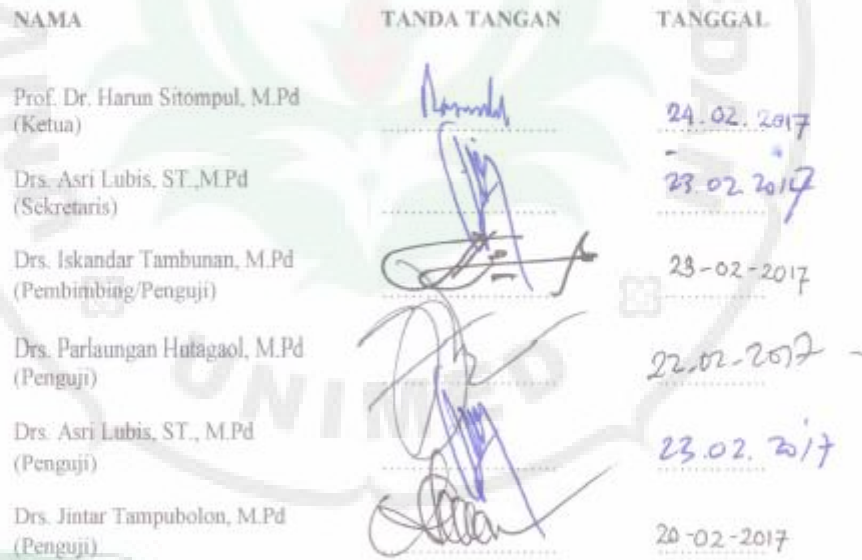 NAMA TANDA TANGAN TANGGAL
Prof. Dr. Harun Sitompul, M.Pd
(Ketua) 24.02.2017
Drs. Asri Lubis, ST.,M.Pd 23.02.2017
(Sekretaris)
Drs. Iskandar Tambunan, M.Pd
(Pembimbing/Penguji) 23-02-2017
Drs. Parlaungan Hutagaol, M.Pd
(Penguji) 22-02-2017
Drs. Asri Lubis, ST., M.Pd
(Penguji) 23.02.2017
Drs. Jintar Tampubolon, M.Pd
(Penguji) 20-02-2017
UNIMED